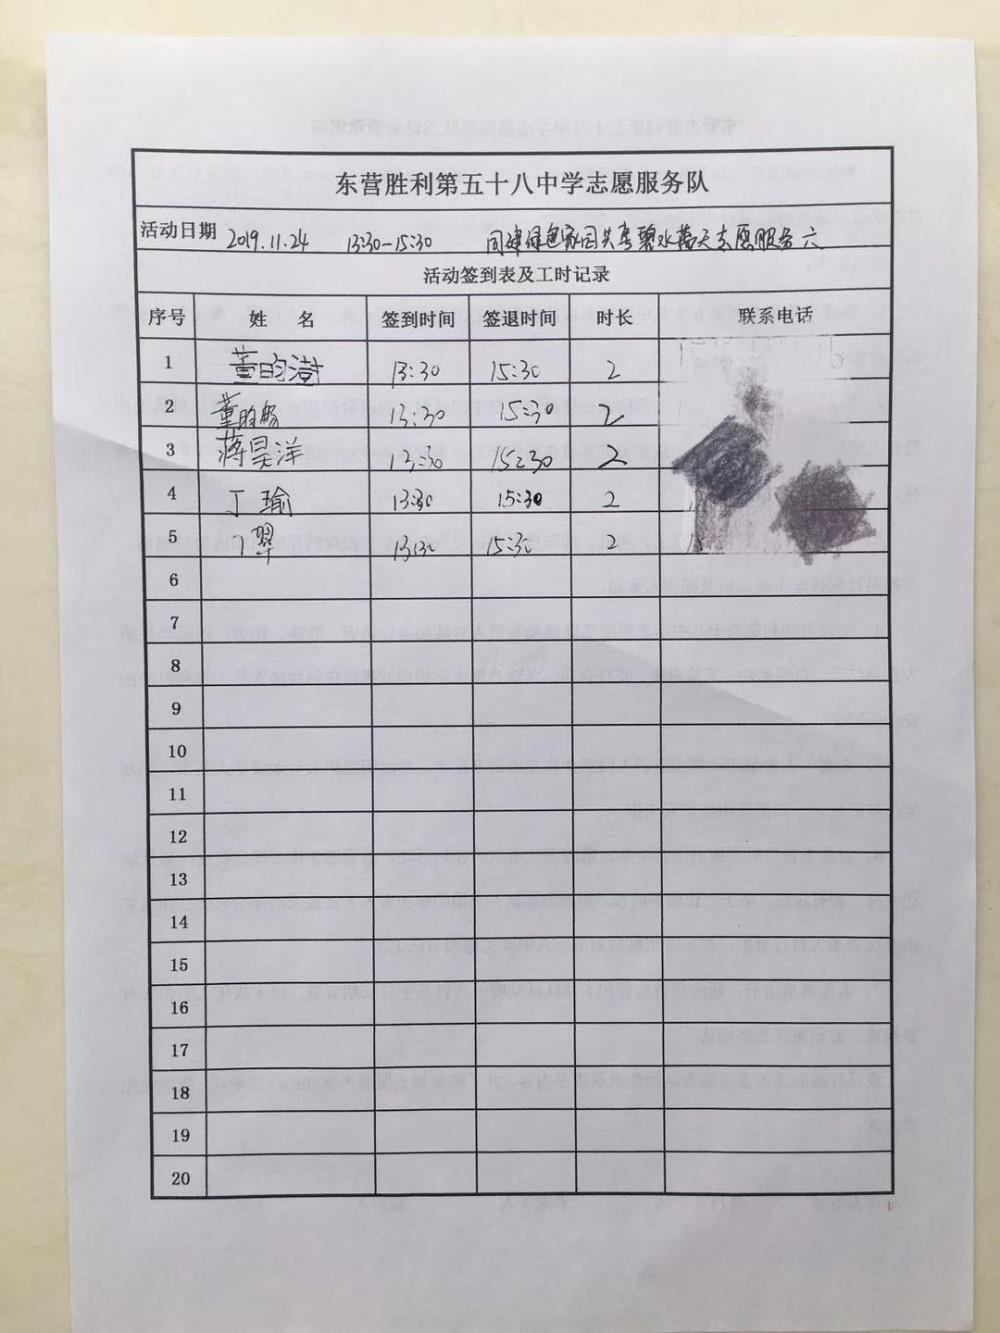 东营胜利第五十八中学志愿服务队
活动日期 2019.11.24 13:30-15:30 同建绿色家园共享碧水蓝天志愿服务六
活动签到表及工时记录
序号 姓 名 签到时间 签退时间 时长 联系电话
1 董昀澍 13:30 15:30 2
2 董昀 13:30 15:30 2
3 蒋昊洋 13:30 15:30 2
4 丁瑜 13:30 15:30 2
5 丁翠 13:30 15:30 2
6
7
8
9
10
11
12
13
14
15
16
17
18
19
20
1